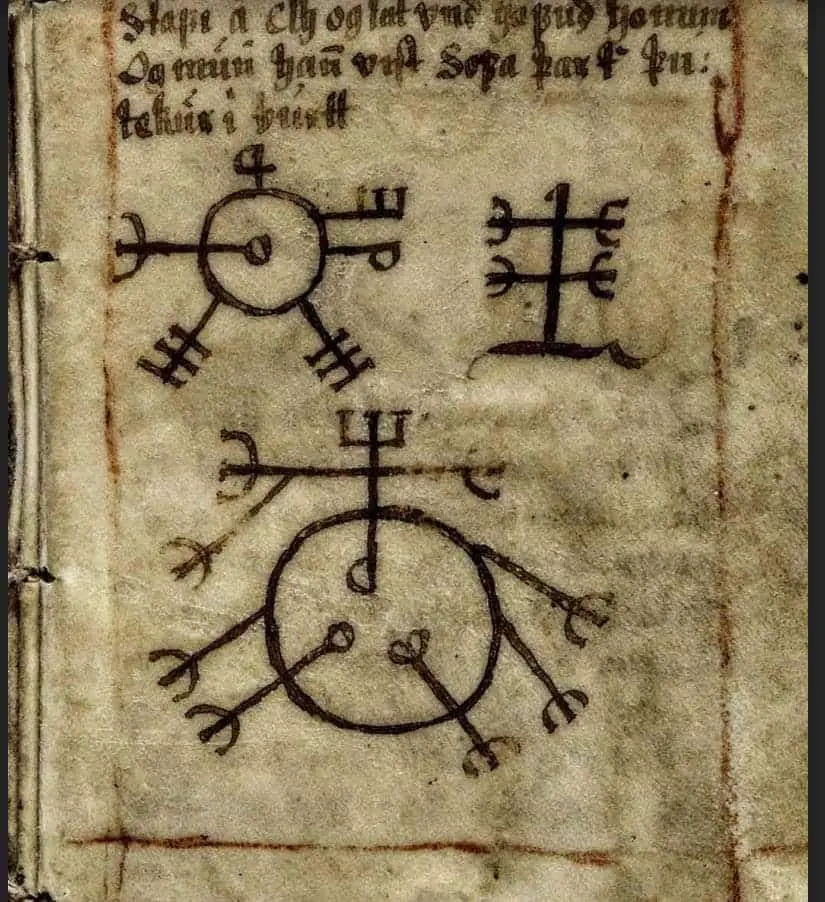 Stafi a Elh og lat vnd hofuð honum
Og mún han̄ vist Sofa þar þu:
tekúr i búrtt